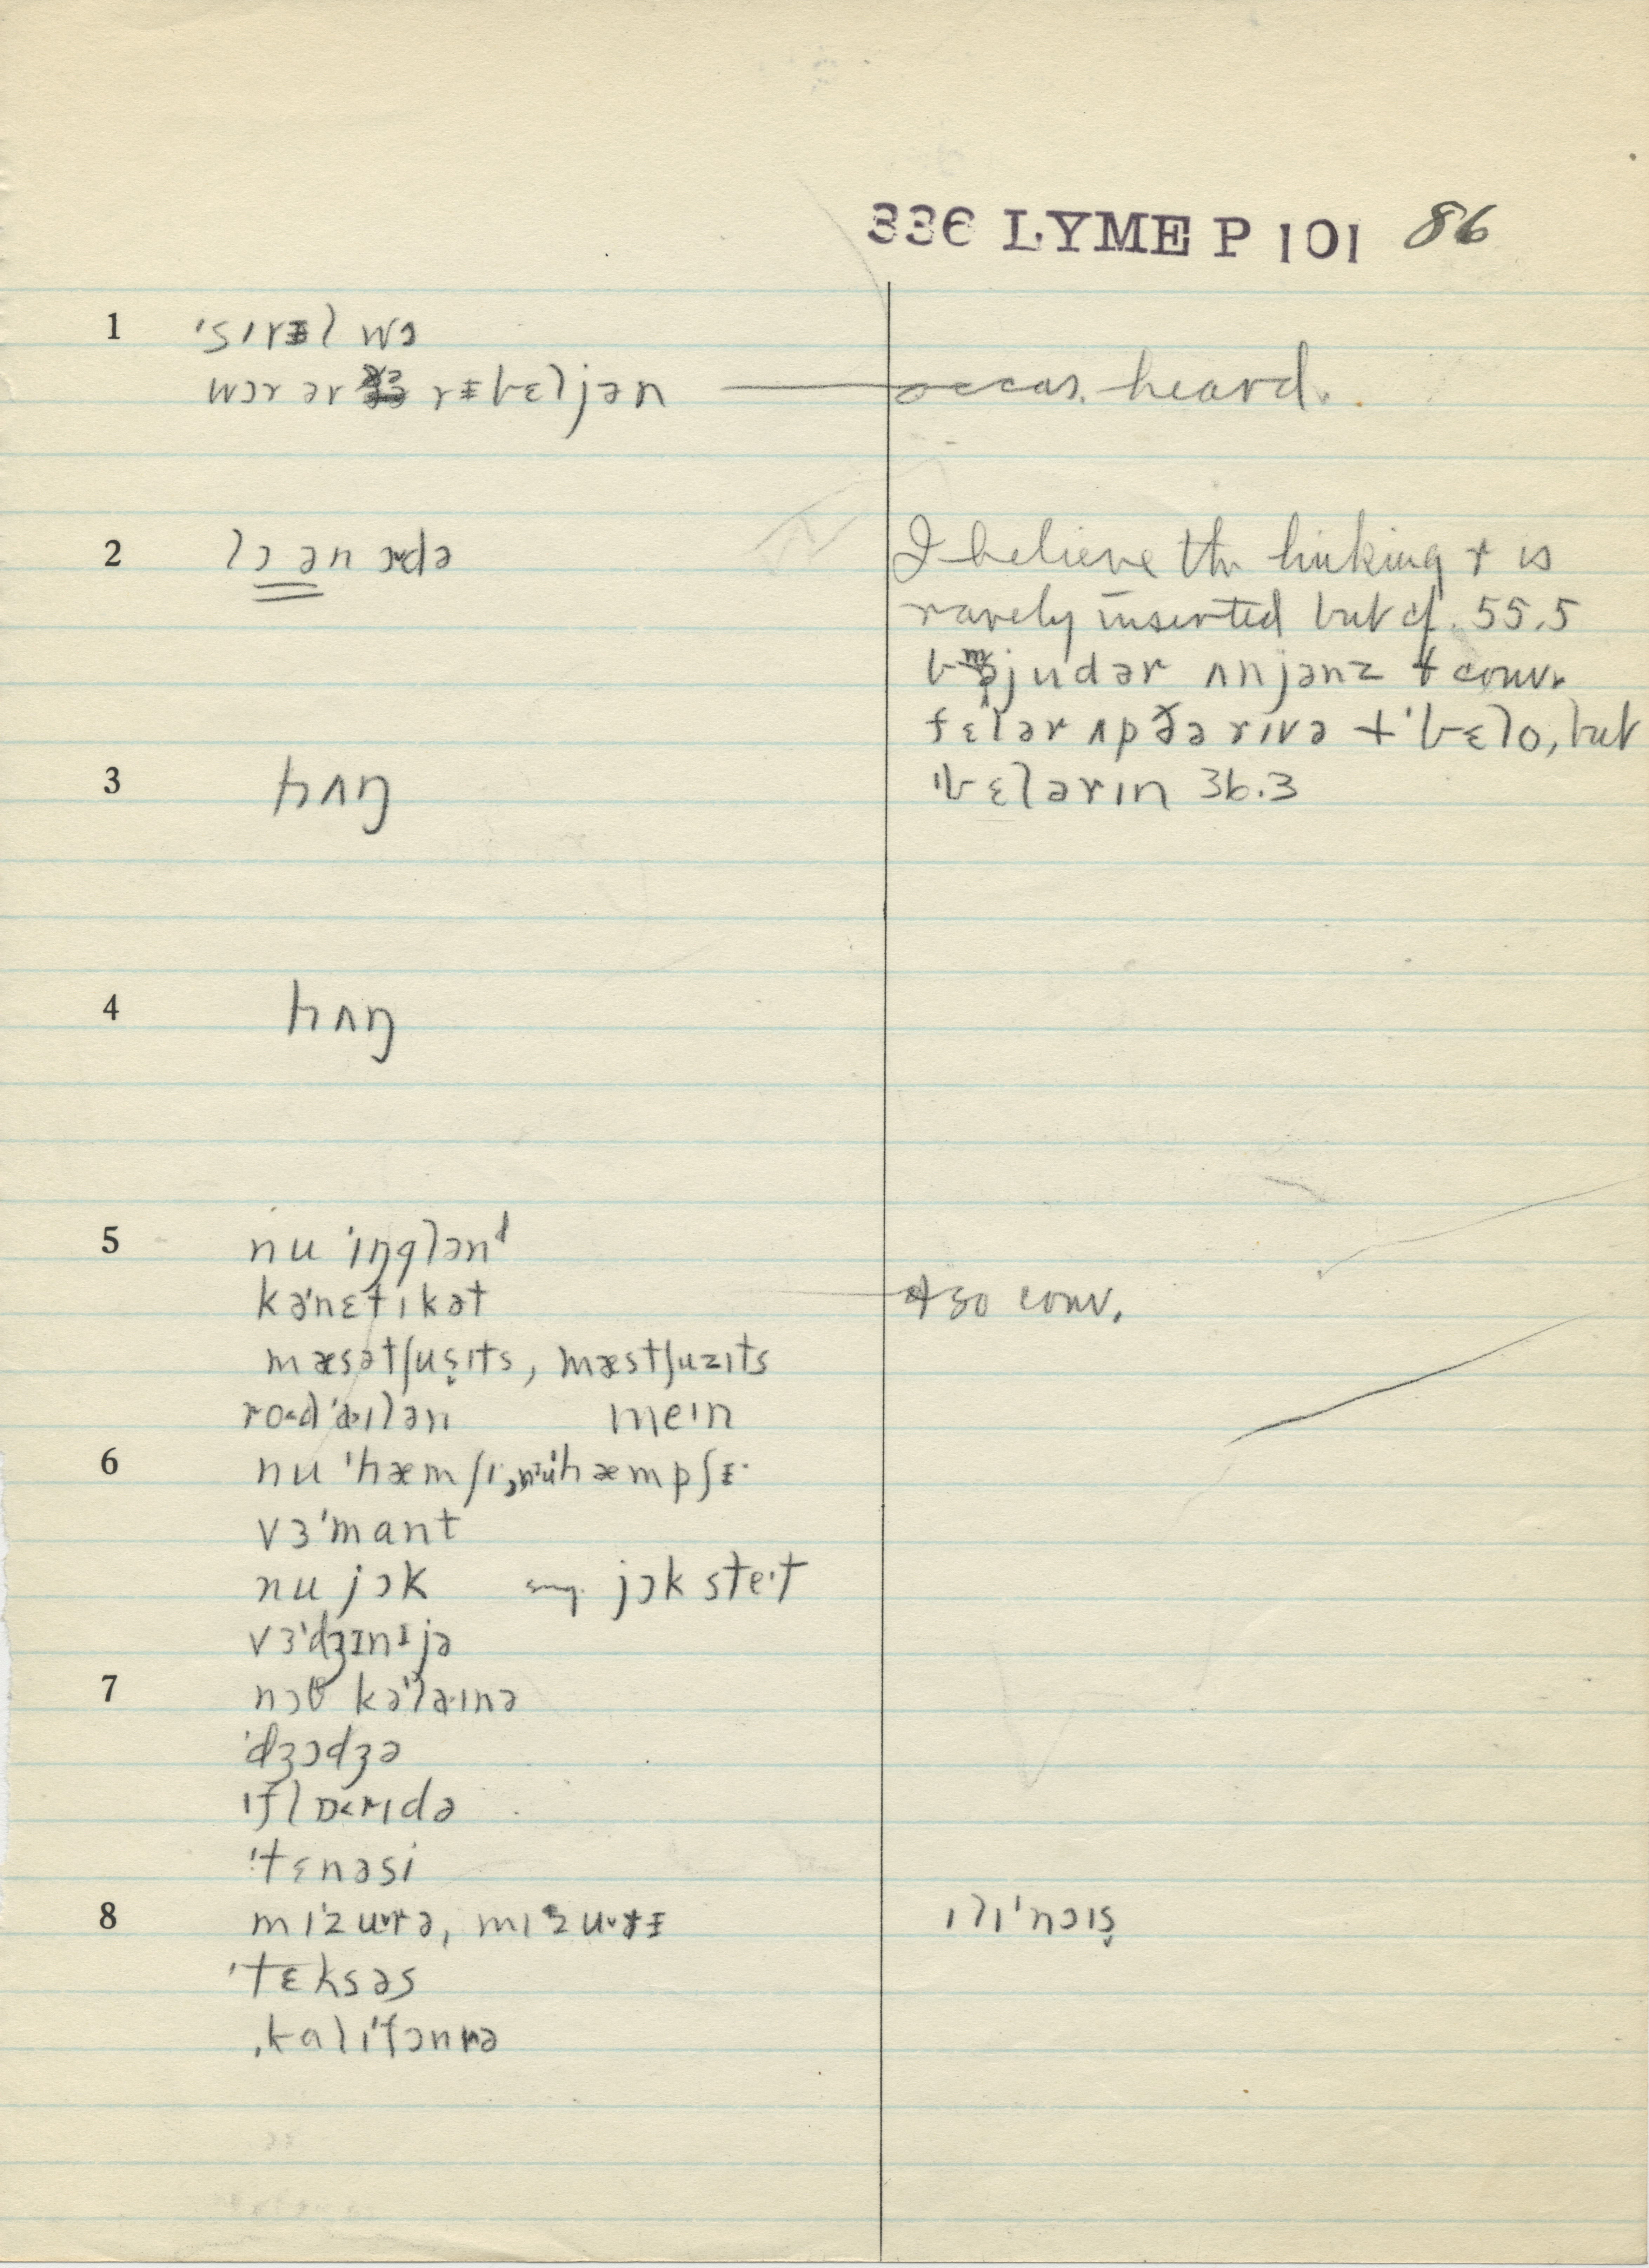 336 LYME P 101 86
1 ˈsɪvᵻl wɔ
wɔr əv rᵻbɛljən — occas. heard.
2 lɔ ən ɔdə
I believe the linking r is
rarely inserted but cf. 55.5
judər ʌnjənz + conv.
fɛlər ʌp ðə rɪvə + ˈbɛlo, but
3 hʌŋ
ˈbɛlərɪn 36.3
4 hʌŋ
5 nu ˈɪŋglənᵈ
kəˈnɛtɪkət — also conv.
mæsətʃuṣɪts, mæstʃuzɪts
ro˂dˈaˑɪlən meˑɪn
6 nu ˈhæmʃɪ, nᵻuˈhæmpʃᵻˑ
vɜˈmant
nu jɔk sug. jɔk steˑɪt
vɜˈdʒɪnᵻjə
7 nɔθ kəˈlaˑɪnə
ˈdʒɔdʒə
ˈflɒrɪdə
ˈtɛnəsi
8 mɪˈzuˑrə, mɪˈzuˑrᵻ ɪlɪˈnɔɪṣ
ˈtɛksəs
ˌkalɪˈfɔnjə